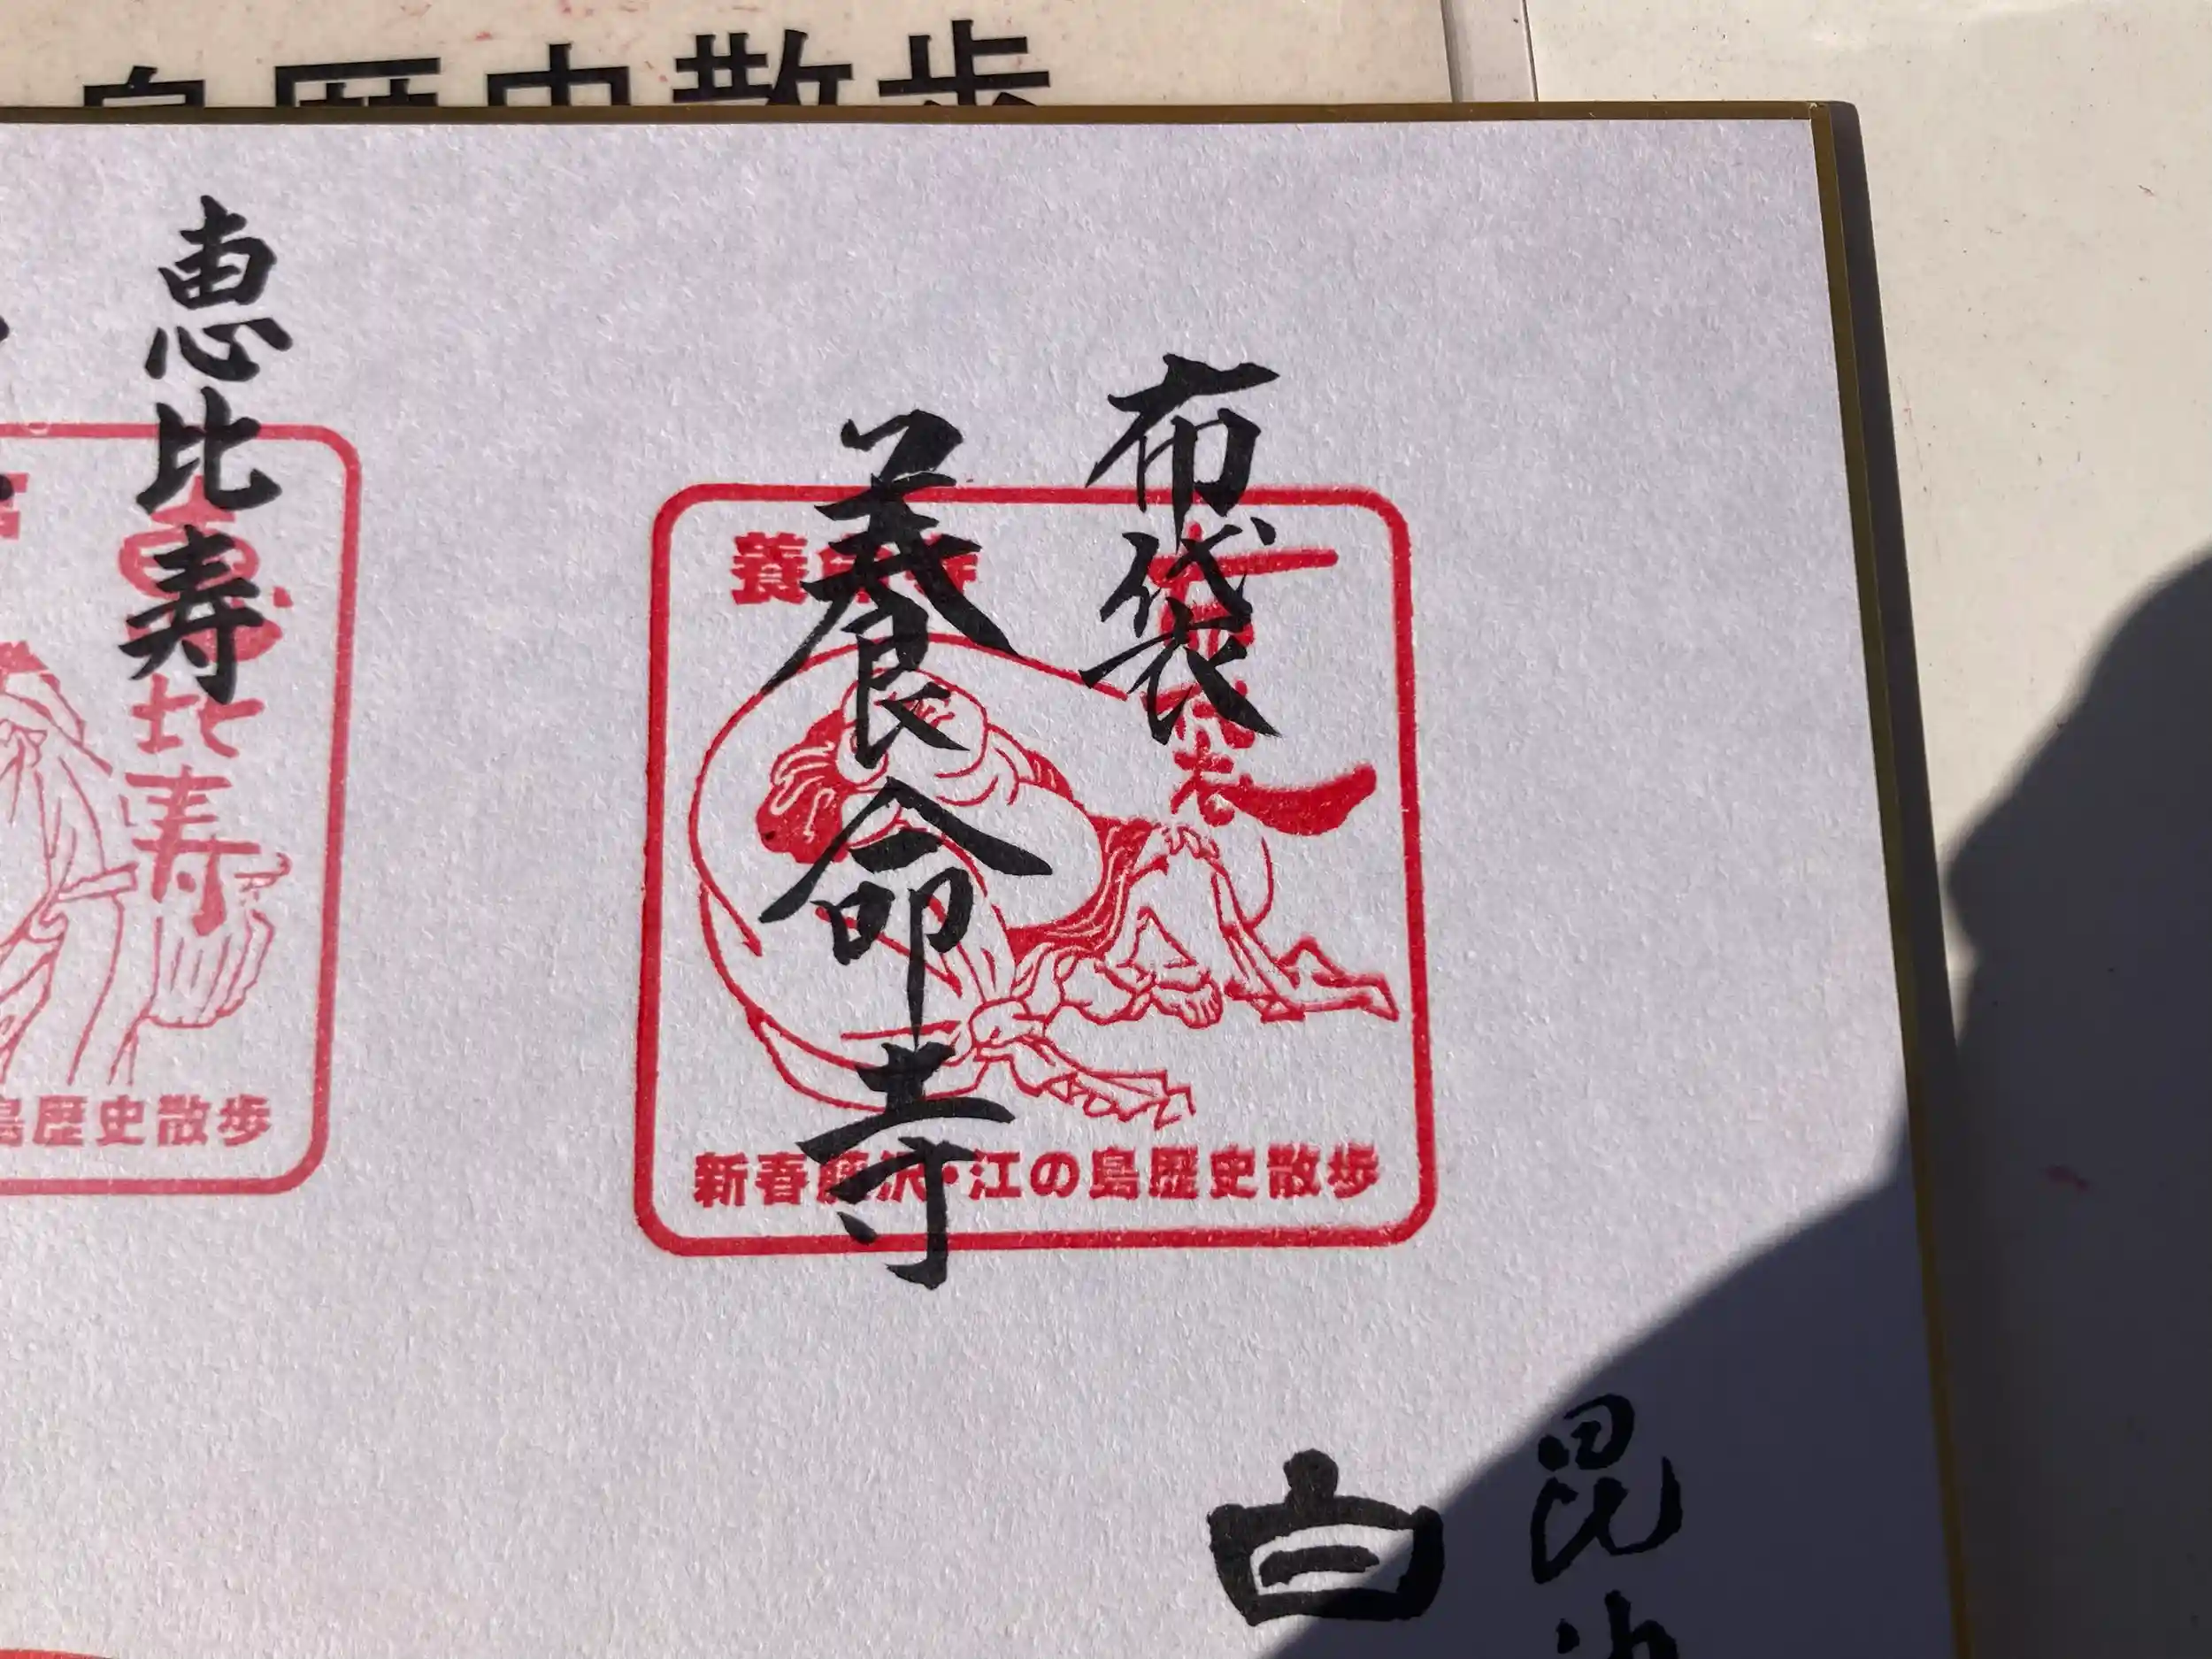 島歴史散歩
布袋
養命寺
養命寺
布袋
新春藤沢・江の島歴史散歩
恵比寿
恵比寿
島歴史散歩
毘
白